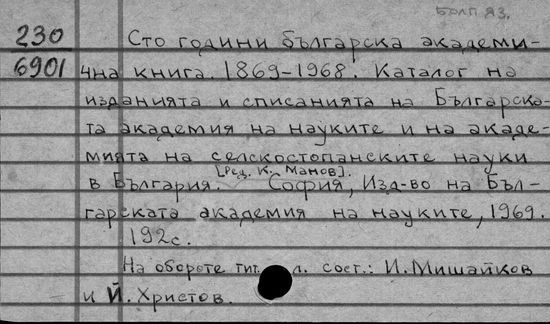 БОЛГ ЯЗ.
230
6901
Сто години българска академи-
чна книга. 1869-1968. Каталог на
изданията и списанията на Българска-
та академия на науките и на акаде-
мията на селскостопанските науки
[Ред. К. Манов].
в България. София, Изд-во на Бъл-
гарската академия на науките, 1969.
192с.
На обороте тит. л. сост.: И. Мишайков
и Й. Христов.